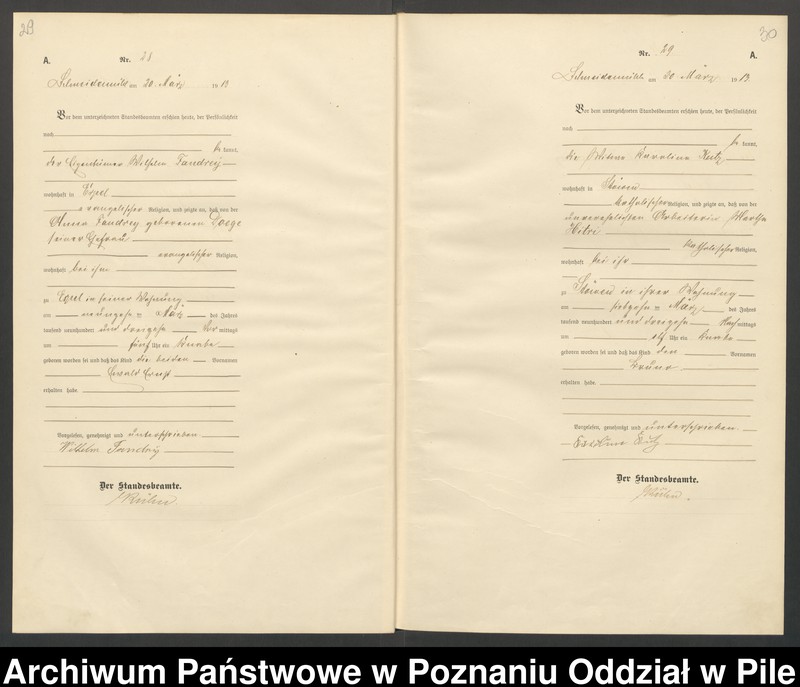 29
A.
Nr. 28
Schneidemühl am 20. März 1913
Vor dem unterzeichneten Standesbeamten erschien heute, der Persönlichkeit
nach
be kannt,
der Eigentümer Wilhelm Fandrey
wohnhaft in
evangelischer Religion, und zeigte an, daß von der
Anna Fandrey geborenen
seiner Ehefrau
evangelischer Religion,
wohnhaft bei ihm
zu in seiner Wohnung
am neunzehn = März des Jahres
tausend neunhundert und dreizehn Vor mittags
um fünf Uhr ein Knabe
geboren worden sei und daß das Kind die beiden Vornamen
Ewald Ernst
erhalten habe
Vorgelesen, genehmigt und unterschrieben
Wilhelm Fandrey
Der Standesbeamte.
30
Nr. 29
A.
Schneidemühl am 20. März 1913.
Vor dem unterzeichneten Standesbeamten erschien heute, der Persönlichkeit
nach
be kannt,
die Witwe Karolina
wohnhaft in
katholischer Religion, und zeigte an, daß von der
unverehelichten Arbeiterin Martha
katholischer Religion,
wohnhaft bei ihr
zu in ihrer Wohnung
am = März des Jahres
tausend neunhundert und dreizehn Nachmittags
um elf Uhr ein Knabe
geboren worden sei und daß das Kind den Vornamen
Bruno
erhalten habe
Vorgelesen, genehmigt und unterschrieben
Der Standesbeamte.
Archiwum Państwowe w Poznaniu Oddział w Pile